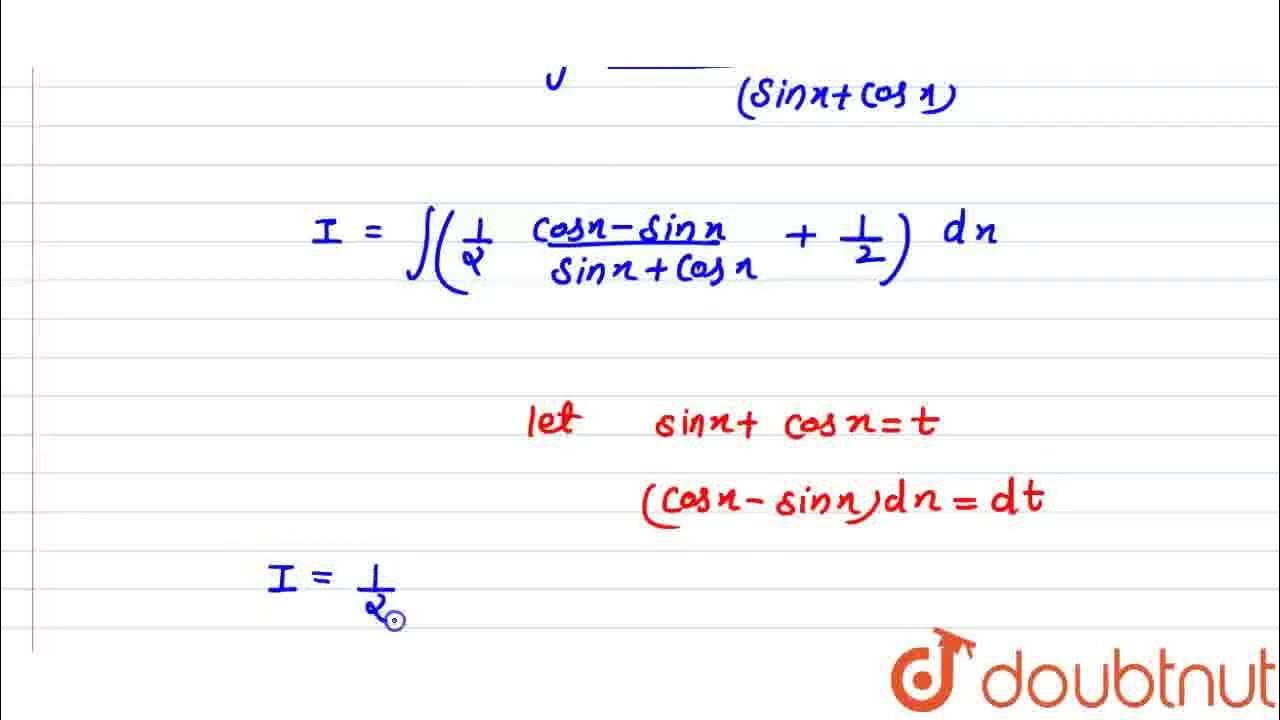 (Sinx + Cos x)
I = ∫(1/2 Cosx - Sinx/Sinx + Cosx + 1/2) dx
let sinx + Cosx = t
(Cosx - sinx)dx = dt
I = 1/2
doubtnut